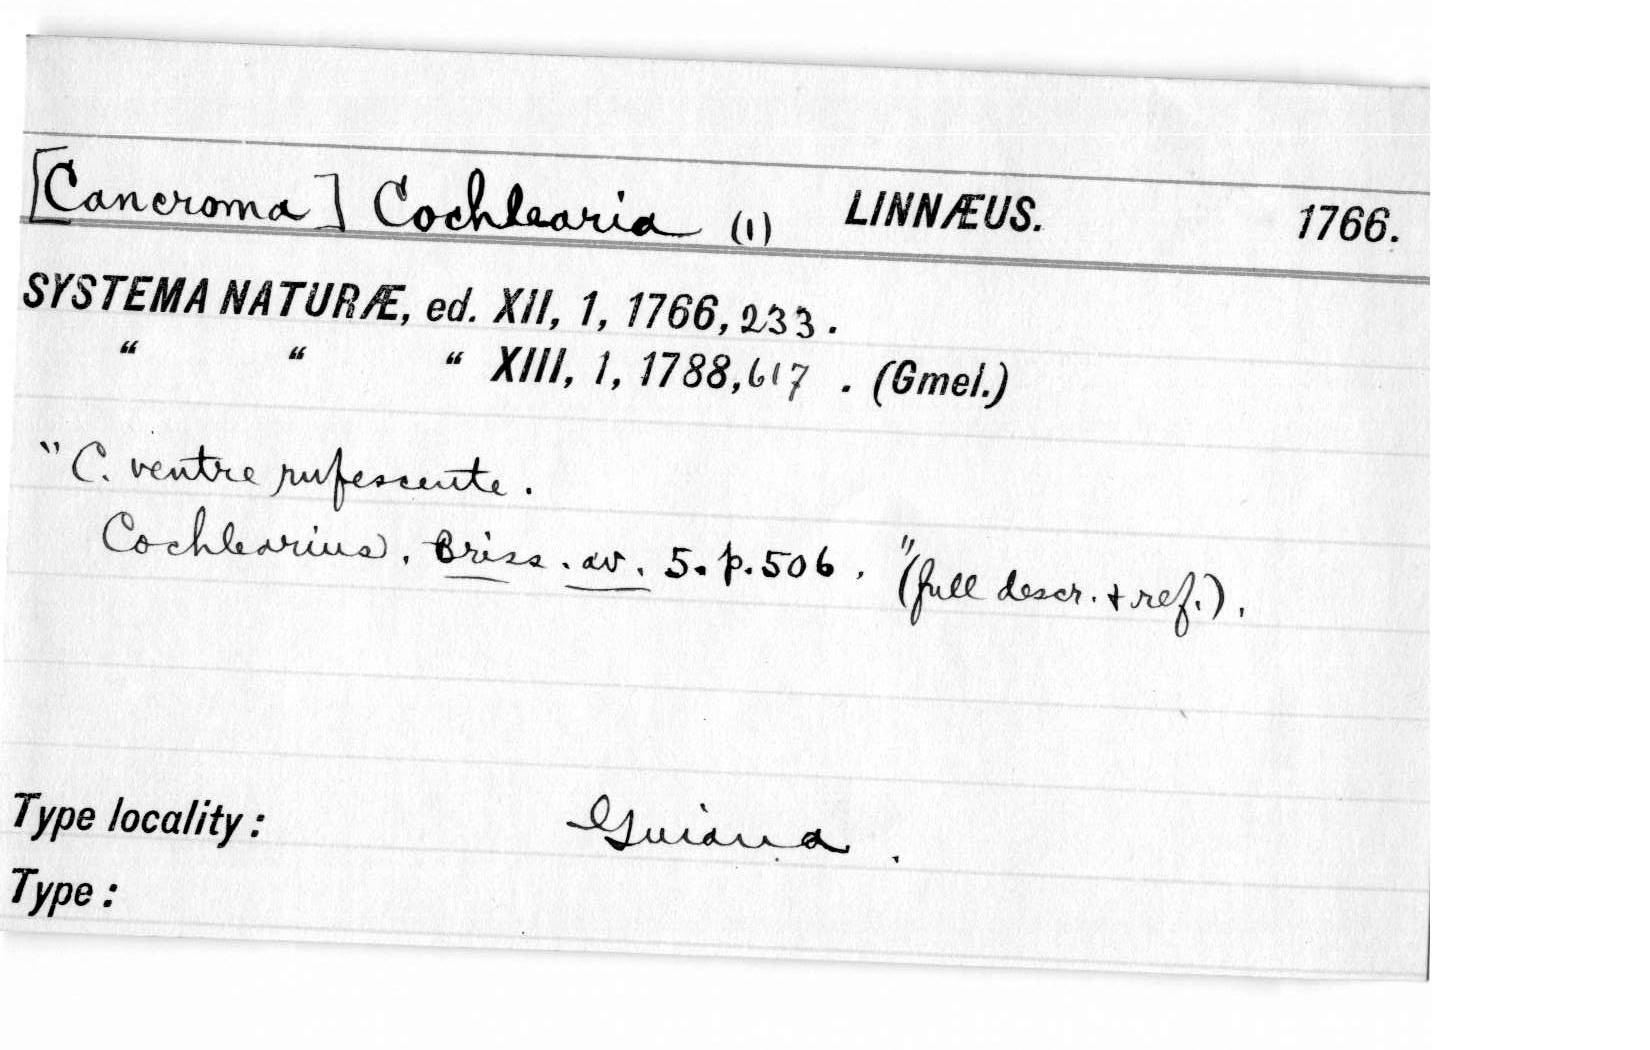 [Cancroma] Cochlearia (1) LINNÆUS. 1766.
SYSTEMA NATURÆ, ed. XII, 1, 1766, 233.
“ “ “ XIII, 1, 1788, 617 . (Gmel.)
" C. ventre rufescente.
Cochlearius, Briss. av. 5. p. 506. " (full descr. + ref.).
Type locality: Guiana.
Type: